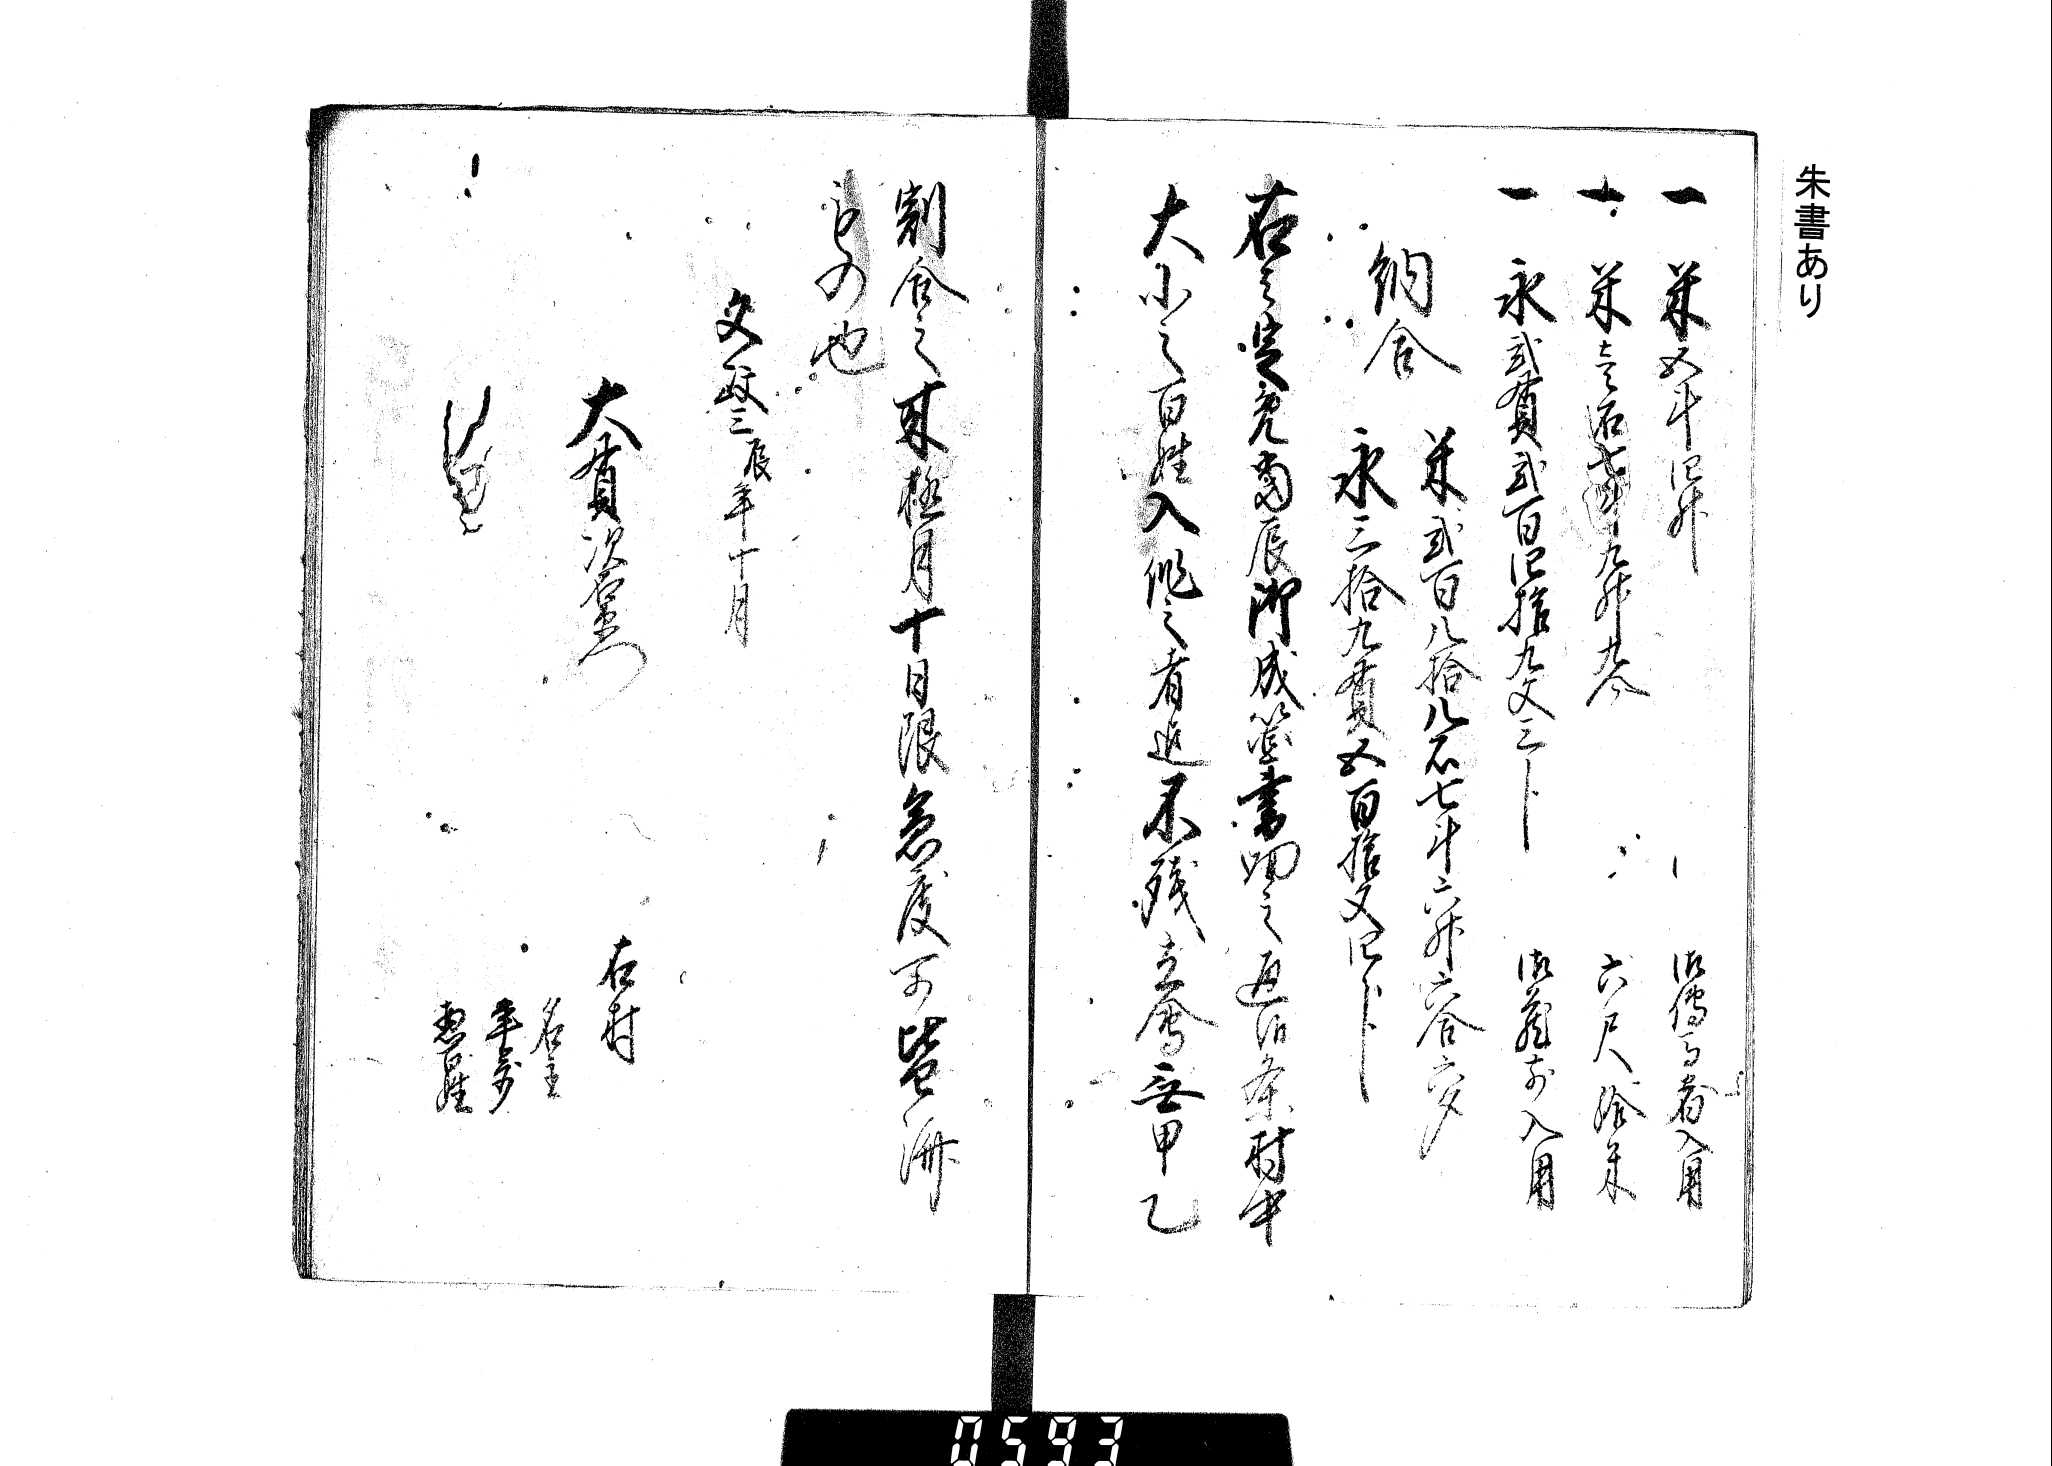 朱書あり
一 米五斗四升 御傳馬宿入用
一 米壱石七斗九升九合 六尺給米
一 永弐貫弐百四拾九文三分 御蔵前入用
納合 米弐百八拾八石七斗六升六合六夕
永三拾九貫五百拾文四分
右之定免当辰御成箇書面之通付条村中
大小之百姓入作之者迄不残立会無甲乙
割合之来極月十日限急度可皆済
もの也
文政三辰年十月
大貫次右衛門
右村
名主
年寄
惣百姓
0593